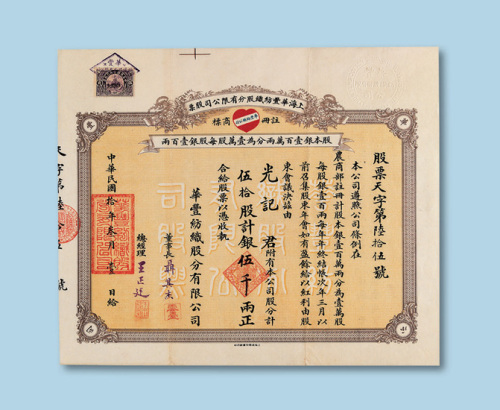 上海華豐紡織股分有限公司股票
註冊 商標
股本銀壹百萬兩分為壹萬股每股銀壹百兩
股票天字第陸拾伍號
本公司遵照公司條例在
農商部註冊計股本銀壹百萬兩分為壹萬股
每股銀壹百兩每年年終結帳次年三月以
前召集股東年會如有盈餘給以紅利由股
東會議決茲由
光記 君附有本公司股分計
伍拾股計銀伍千兩正
合給股票以憑收執
華豐紡織股分有限公司
董事長
總經理
中華民國拾年叁月 日給
天字第陸拾伍號